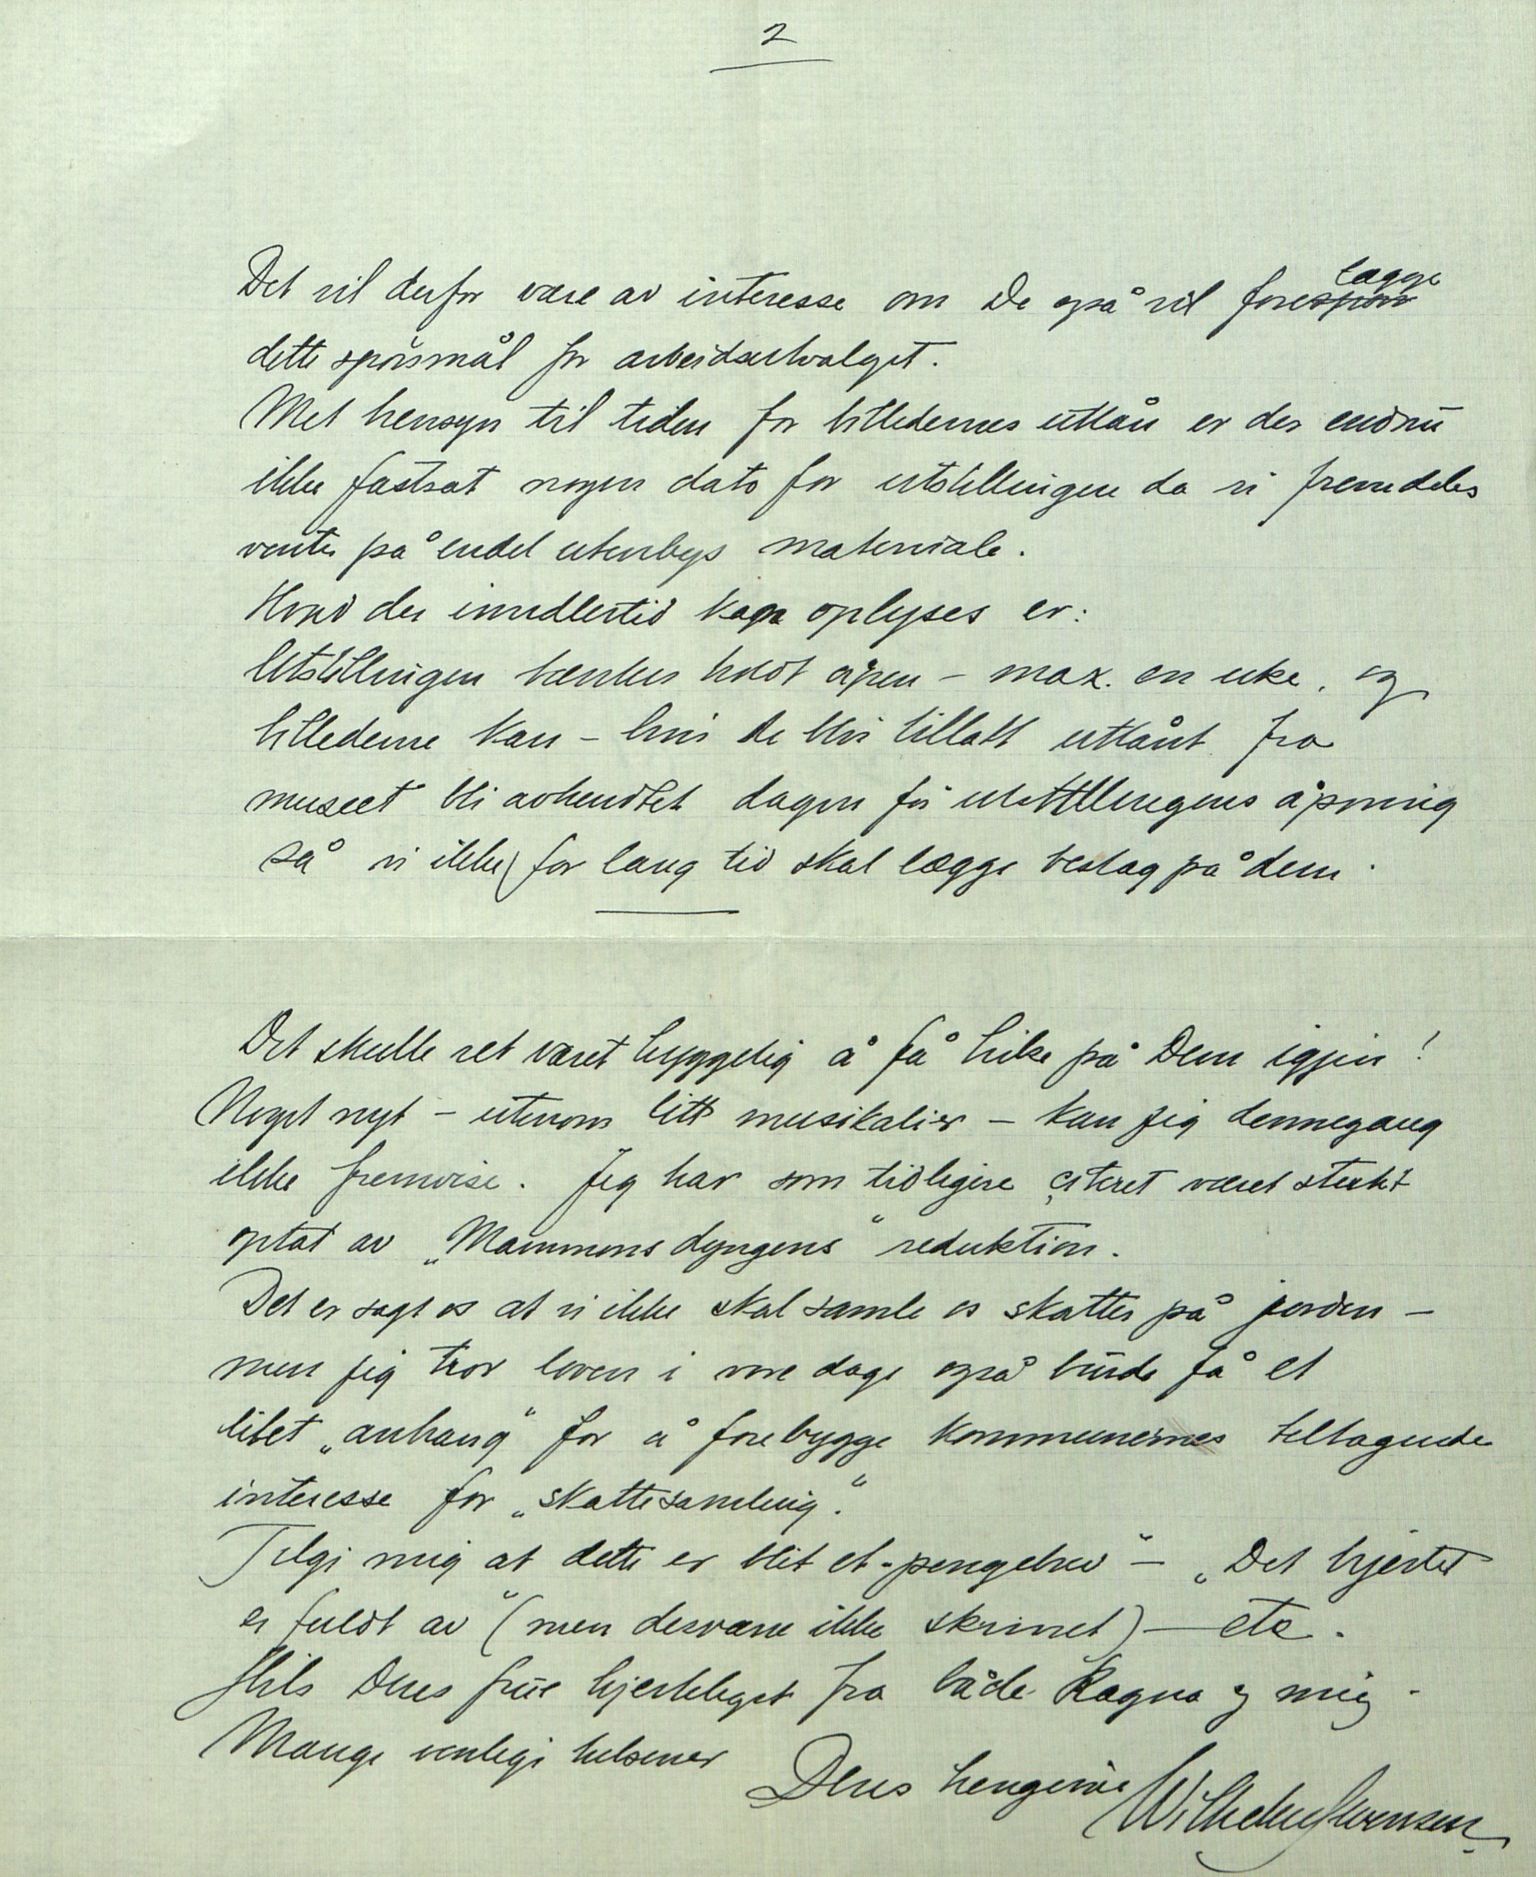 2
Det vil derfor være av interesse om De også vil forelægge
dette spörsmål for arbeidsutvalget.
Met hensyn til tiden for billedernes utlån er der endnu
ikke fastsat nogen dato for utstillingen da vi fremdeles
venter på endel utenbys materiale.
Hvad der imidlertid kan oplyses er:
Utstillingen tænkes holdt åpen – max. en uke, og
billederne kan – hvis de blir tillatt utlånt fra
museet bli avhendtet dagen för utstillingens åpning
så vi ikke for lang tid skal lægge beslag på dem.
Det skulle ret været hyggelig å få hilse på Dem igjen!
Noget nyt – utenom litt musikalier – kan jeg dennegang
ikke fremvise. Jeg har som tidligere citeret været sterkt
optat av „Mammons dyngens" reduktion.
Det er sagt os at vi ikke skal samle os skatter på jorden –
men jeg tror loven i vore dage også burde få et
litet „anhang" for å forebygge kommunernes tiltagende
interesse for „skattesamling".
Tilgi mig at dette er blit et „pengebrev" – „Det hjertet
er fuldt av" (men desværre ikke skrinet) – etc.
Hils Deres frue hjerteligst fra både Ragna og mig.
Mange venlige hilsener
Deres hengivne
Wilhelm Svensen